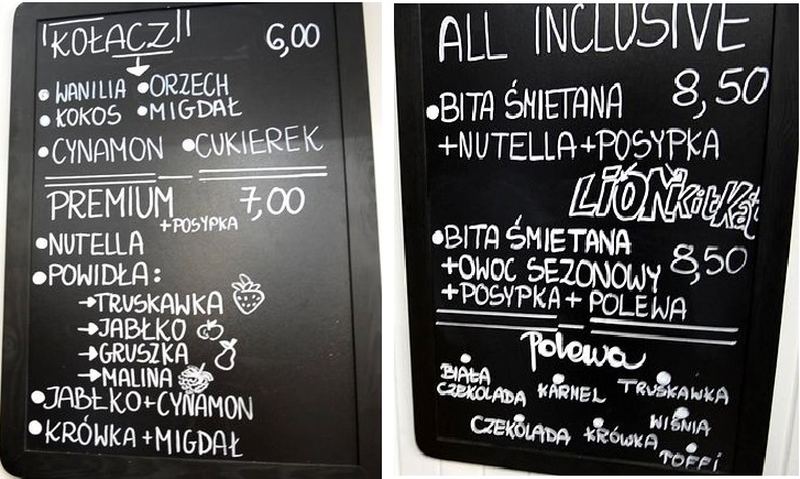 "KOŁACZ" 6,00
• WANILIA • ORZECH
• KOKOS • MIGDAŁ
• CYNAMON • CUKIEREK
PREMIUM 7,00
+POSYPKA
• NUTELLA
• POWIDŁA:
→ TRUSKAWKA
→ JABŁKO
→ GRUSZKA
→ MALINA
• JABŁKO+CYNAMON
• KRÓWKA+MIGDAŁ
ALL INCLUSIVE
• BITA ŚMIETANA 8,50
+NUTELLA+POSYPKA
LION KitKat
• BITA ŚMIETANA
+OWOC SEZONOWY 8,50
+POSYPKA+POLEWA
Polewa
• BIAŁA CZEKOLADA • KARMEL • TRUSKAWKA
• CZEKOLADA • KRÓWKA • WIŚNIA
• TOFFI